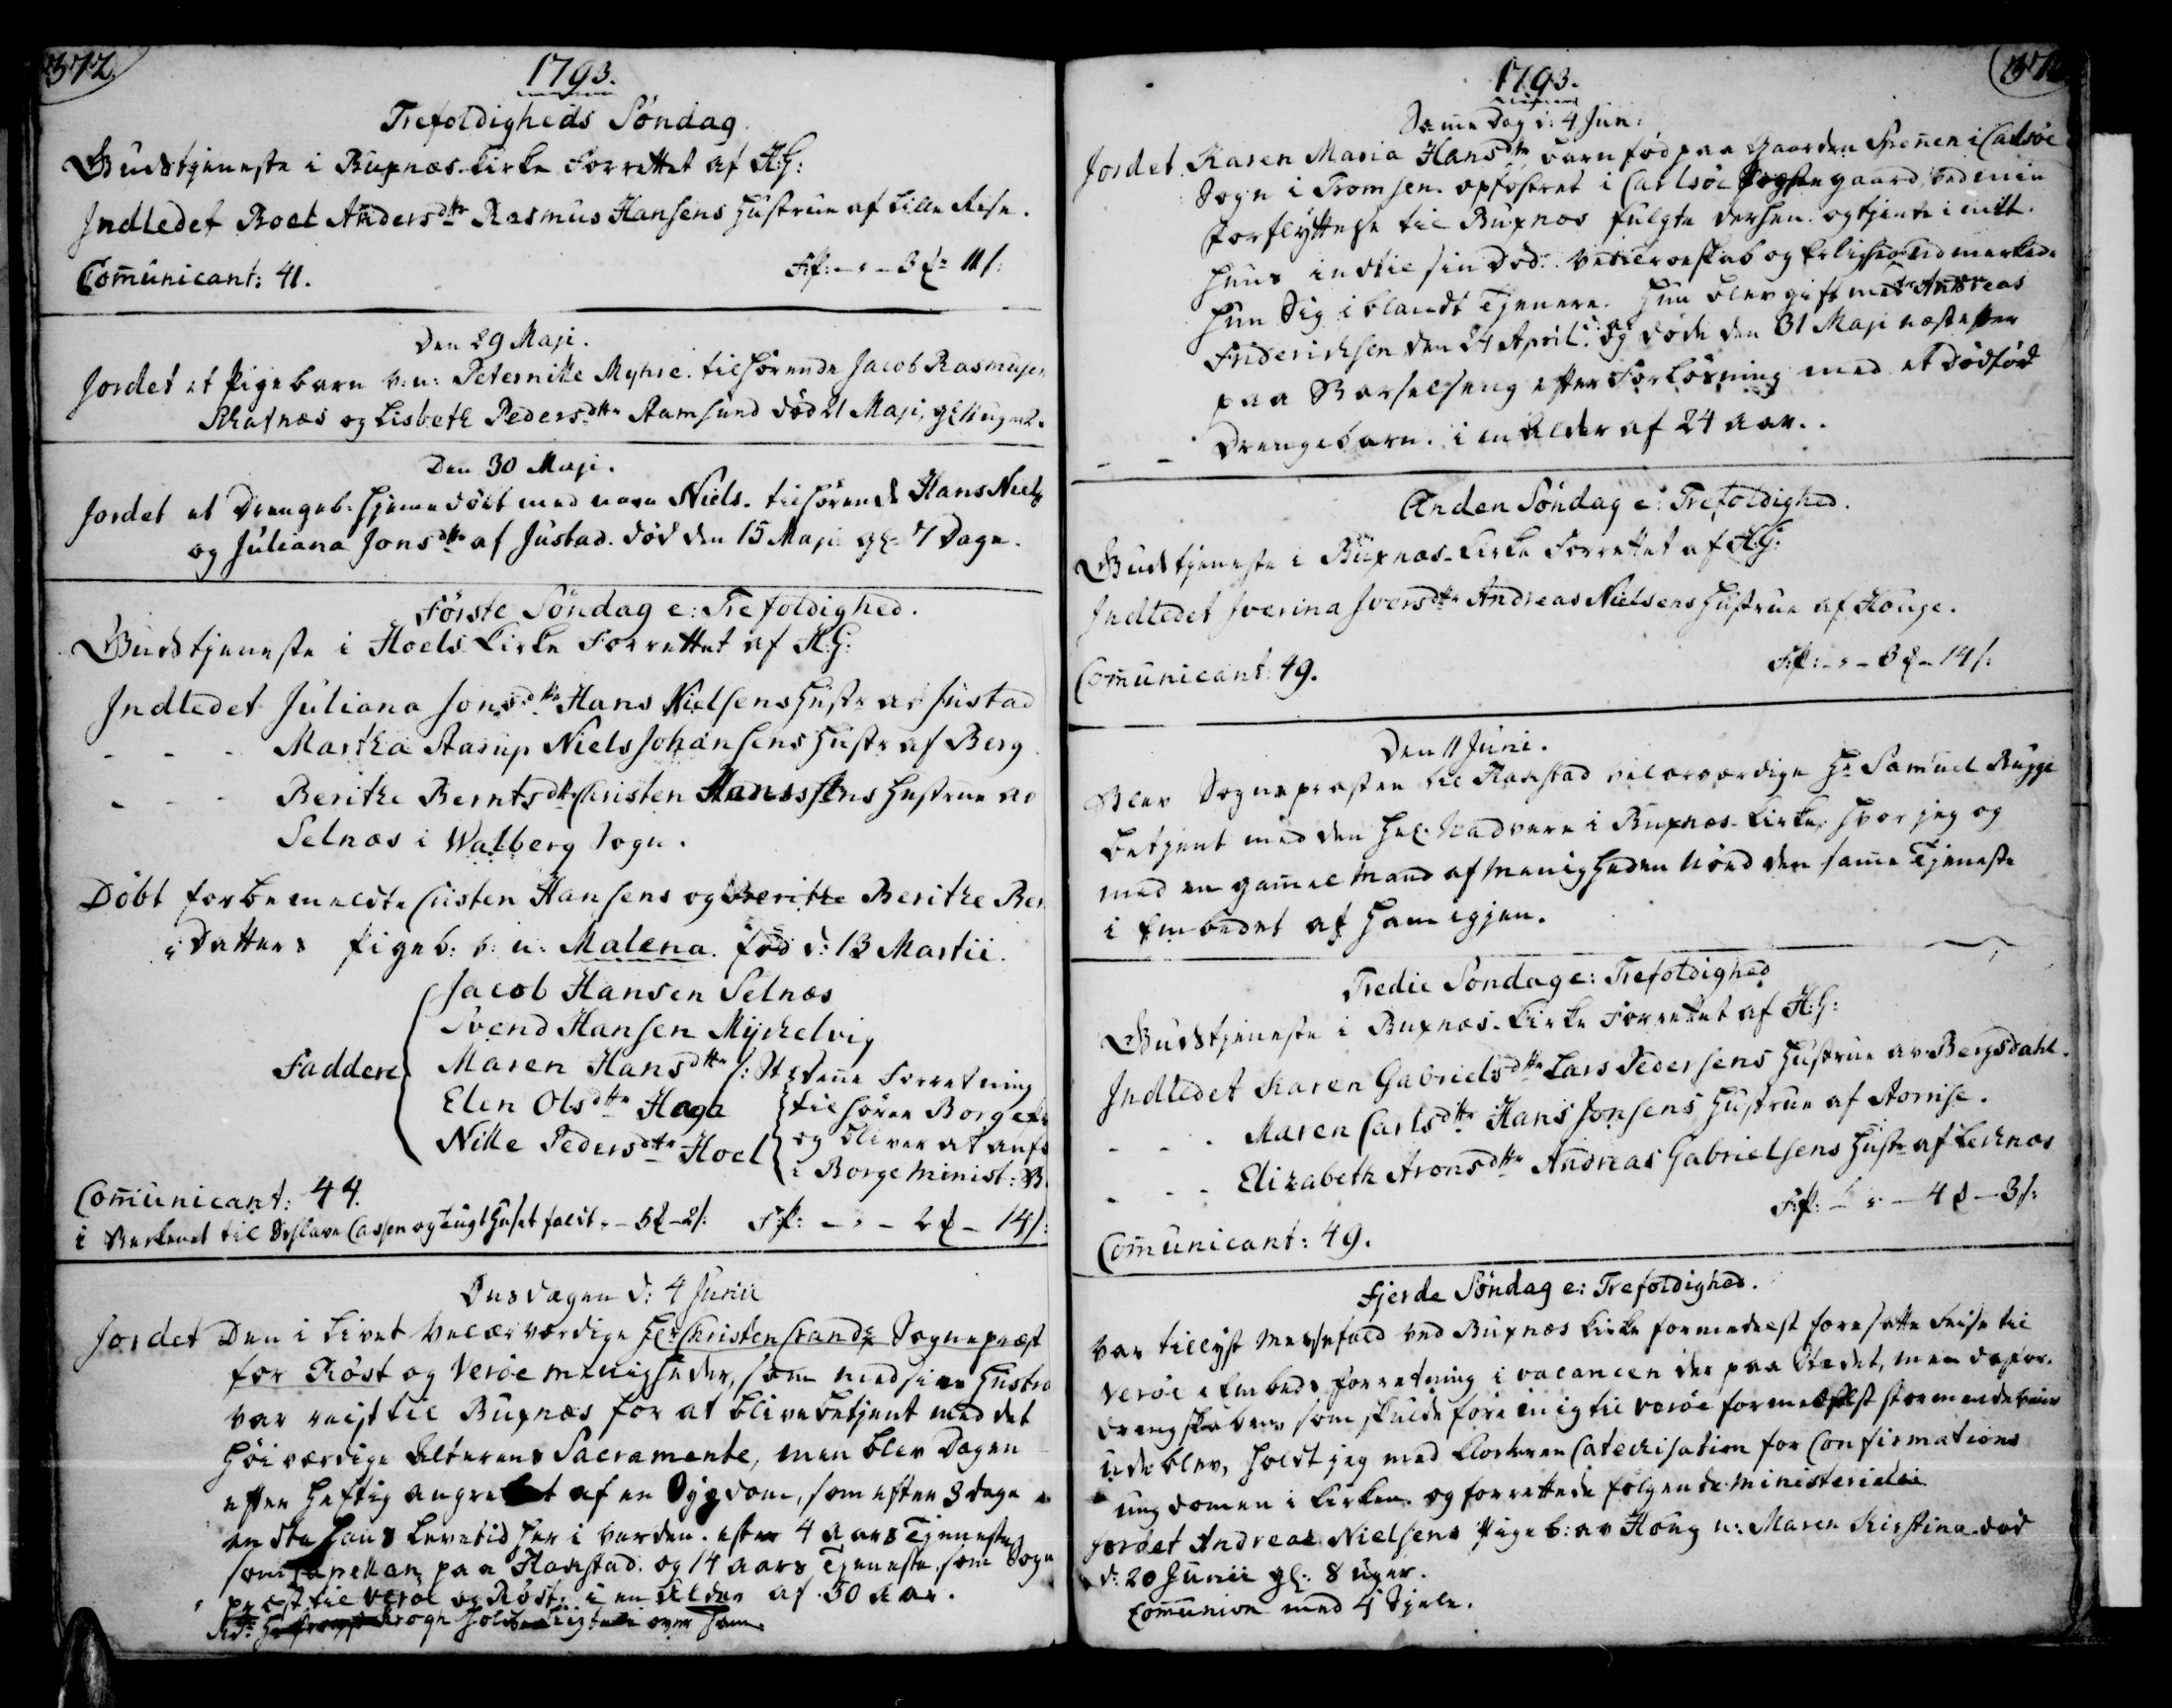 372.
1793.
Trefoldigheds Söndag.
Gudstjeneste i Buxnæs Kirke Forrettet af H:G:
Indledet Roel Andersdttr Rasmus Hansens Hustrue af Lille Rise.
Comunicant: 41.
Fp: - - 3 ƶ 11 s:
Den 29 Maji.
Jordet et Pigebarn v: n: Peternille Myhre. tilhörende Jacob Rasmusen
Schafnæs og Lisbeth Pedersdttr Ramsund död 21 Maji, gl: 11 uger.
Den 30 Maji.
Jordet et Drengeb: hjemedöbt med navn Niels. tilhörende Hans Niels
og Juliana Jonsdttr af Justad. död den 15 Maji gl: 7 Dage.
Förste Söndag e: Trefoldighed.
Gudstjeneste i Hoels Kirke Forrettet af H:G:
Indledet Juliana Jonsdttr Hans Nielsens Hustr: af Justad
- - - Martha Aarup Niels Johansens Hustr: af Berg
- - - Berithe Berntsdttr Christen Hanssens Hustrue af
Selnæs i Walberg Sogn.
Döbt forbemeldte Cristen Hansens og Berithe Berithe Ber
Datters Pigeb: v: n: Malena. född d: 13 Martii.
Jacob Hansen Selnæs
Svend Hansen Myckelvig
Faddere Maren Hansdttr s: St: denne Forretning
Elen Olsdttr Haga tilhörer Borge
Nille Pedersdttr Hoel og bliver at anf
i Borge Minist: B
Comunicant: 44.
i Bækenet til Slave Cassen og Tugthuset faldt - 5 ƶ - 2 s: Fp: - - 2 ƶ - 14 s:
Onsdagen d: 4 Junii
Jordet Den i Livet Velærværdige Hr Christen Crandz Sognepræst
for Röst og Veröe Menigheder, som med sin Hustro
var reist til Buxnæs for at blive betjent med det
Höiværdige Alterens Sacramente, men blev Dagen
efter heftig angrebet af en Sygdom, som efter 3 dage
endte hans Levetid her i Verden. efter 4 Aars Tjeneste
som Capellan paa Hassstad. og 14 aars Tjeneste som Sogne
præst til Veröe og Röst. i en Alder af 50 Aar.
Krogh holdt Ligtale over ham.
1793.
Samme Dag d: 4 Jun:
Jordet Karen Maria Hansdttr, barnföd paa Gaarden Spenen i Carlsöe
Sogn i Tromsen. opfostret i Carlsöe Prestegaard, ved min
Forflyttelse til Buxnæs fulgte derhen. og tjente i mit
Huus indtil sin Död. Ved Troeskab og Erlighed udmerkede
hun Sig iblandt Tjenere. Hun blev gift med Andreas
Friderichsen den 24 April: d: a: og döde den 31 Maji næstefter
paa Barselseng efter Forlösning med et Dödföd
Drengebarn. i en Alder af 24 Aar.
Anden Söndag e: Trefoldighed.
Gudstjeneste i Buxnæs Kirke Forrettet af H:G:
Indledet Iverina Iversdttr Andreas Nielsens Hustrue af Houge.
Comunicant: 49.
Fp: - - 3 ƶ - 14 s:
Den 11 Juni.
Blev Sognepræsten til Hasstad velærværdige Hr Samuel Bugge
betjent med den Hel: Nadvere i Buxnæs Kirke, hvor jeg og
med en gammel Mand af Menigheden Nöed den samme Tjeneste
i Embedet af ham igjen.
Tredie Söndag e: Trefoldighed
Gudstjeneste i Buxnæs Kirke Forrettet af H:G:
Indledet Karen Gabrielsdttr Lars Pedersens Hustrue af Bergsdahl.
- - - Maren Carlsdttr Hans Jonsens Hustrue af Aornse.
- - - Elizabeth Aronsdttr Andreas Gabrielsens Hustr: af Lecknæs
Fp: - - 4 ƶ - 3 s:
Comunicant: 49.
Fjerde Söndag e: Trefoldighed.
Var tillyst Messefald ved Buxnæs Kirke formedelst foresatte Reise til
Veröe i Embeds forretning i vacancen der paa Stedet, men da för-
drengskaben, som skulde före mig til Veröe formedelst stormende veir
udeblev, holdt jeg med Klockeren Catechisation for Confirmations
ungdomen i Kirken. og forrettede fölgende Ministerialia
Jordet Andreas Nielsens Pigeb: af Houg n: Maren Kirstina död
d: 20 Junii gl: 8 uger.
Communion med 4 Sjele.